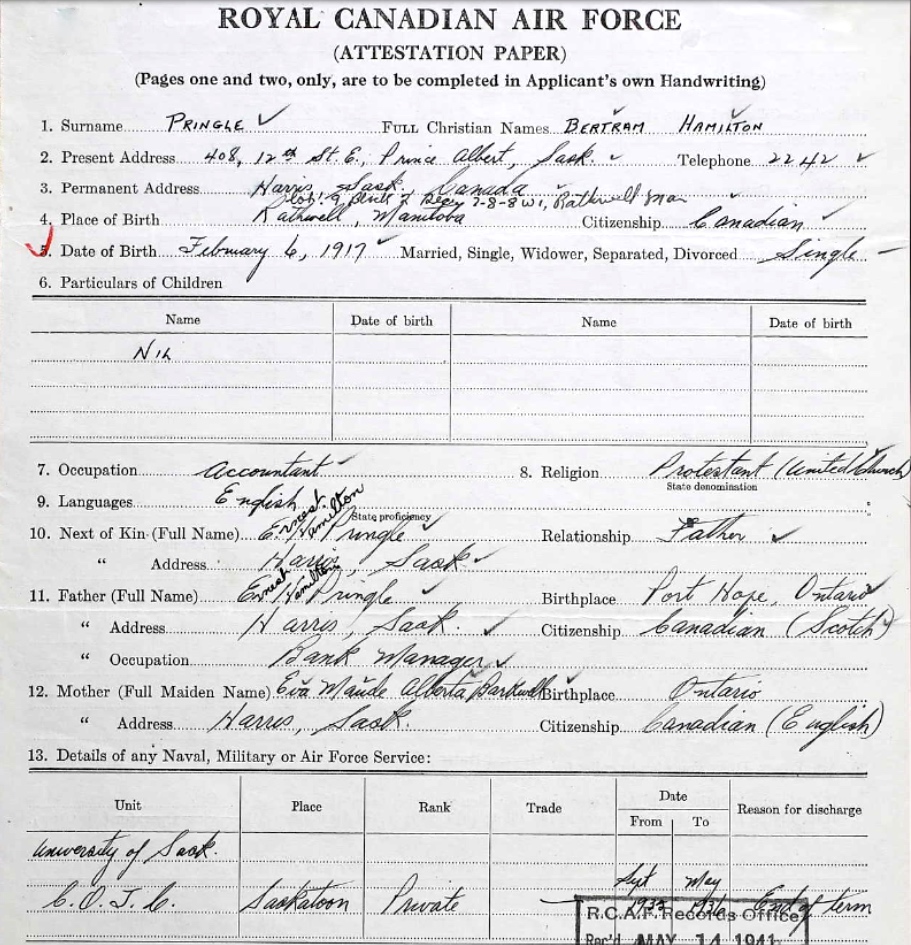 ROYAL CANADIAN AIR FORCE
(ATTESTATION PAPER)
(Pages one and two, only, are to be completed in Applicant's own Handwriting)
1. Surname PRINGLE FULL Christian Names BERTRAM HAMILTON
2. Present Address 408, 12th St. E., Prince Albert, Sask. Telephone 2242
3. Permanent Address Harris, Sask. Canada
7-8-8 W1, Rathwell Man
4. Place of Birth Rathwell, Manitoba Citizenship Canadian
5. Date of Birth February 6, 1917 Married, Single, Widower, Separated, Divorced Single
6. Particulars of Children
Name Date of birth Name Date of birth
NIL
7. Occupation Accountant 8. Religion Protestant (United Church)
State denomination
9. Languages English
State proficiency
Ernest Hamilton
10. Next of Kin (Full Name) E. H. Pringle Relationship Father
" Address Harris, Sask.
Ernest Hamilton
11. Father (Full Name) E. H. Pringle Birthplace Port Hope, Ontario
" Address Harris, Sask. Citizenship Canadian (Scotch)
" Occupation Bank Manager
12. Mother (Full Maiden Name) Eva Maude Alberta Barkwell Birthplace Ontario
" Address Harris, Sask. Citizenship Canadian (English)
13. Details of any Naval, Military or Air Force Service:
Unit Place Rank Trade Date Reason for discharge
From To
University of Sask.
Sept May
C.O.T.C. Saskatoon Private End of term
R.C.A.F. Records Office
Rec'd MAY 14 1941